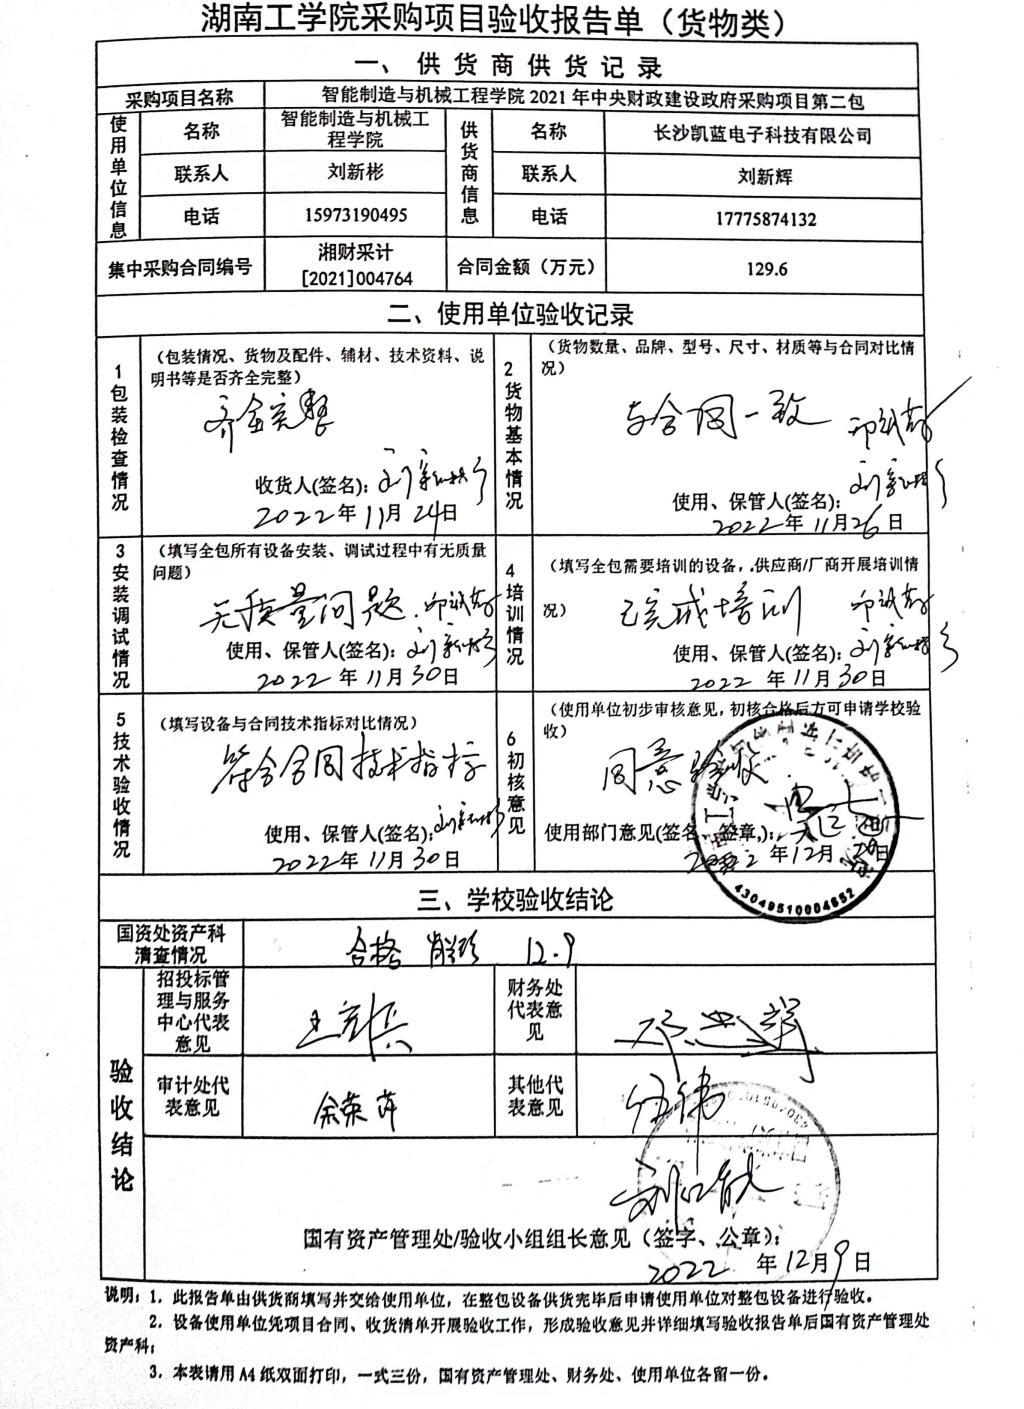 湖南工学院采购项目验收报告单（货物类）
一、供货商供货记录
采购项目名称 智能制造与机械工程学院 2021 年中央财政建设政府采购项目第二包
使用单位信息 名称 智能制造与机械工程学院 供货商信息 名称 长沙凯蓝电子科技有限公司
联系人 刘新彬 联系人 刘新辉
电话 15973190495 电话 17775874132
集中采购合同编号 湘财采计 [2021]004764 合同金额（万元） 129.6
二、使用单位验收记录
1 包装检查情况
（包装情况、货物及配件、辅材、技术资料、说
明书等是否齐全完整）
齐全完整
收货人(签名)：刘新彬
2022年11月24日
2 货物基本情况
（货物数量、品牌、型号、尺寸、材质等与合同对比情
况）
与合同一致
使用、保管人(签名)：刘新彬
2022年11月26日
3 安装调试情况
（填写全包所有设备安装、调试过程中有无质量
问题）
无质量问题.
使用、保管人(签名)：刘新彬
2022年11月30日
4 培训情况
（填写全包需要培训的设备，.供应商/厂商开展培训情
况）
已完成培训
使用、保管人(签名)：刘新彬
2022年11月30日
5 技术验收情况
（填写设备与合同技术指标对比情况）
符合合同技术指标
使用、保管人(签名)：刘新彬
2022年11月30日
6 初核意见
（使用单位初步审核意见，初核合格后方可申请学校验
收）
同意验收
使用部门意见(签名、签章,)：
2022年12月
43049510004652
三、学校验收结论
国资处资产科
清查情况
合格 12.9
验收结论
招投标管
理与服务
中心代表
意见
财务处
代表意
见
审计处代
表意见
余荣萍
其他代
表意见
伍伟
国有资产管理处/验收小组组长意见（签字、公章）：
2022年12月9日
说明：1．此报告单由供货商填写并交给使用单位，在整包设备供货完毕后申请使用单位对整包设备进行验收。
2．设备使用单位凭项目合同、收货清单开展验收工作，形成验收意见并详细填写验收报告单后国有资产管理处
资产科；
3．本表请用 A4 纸双面打印，一式三份，国有资产管理处、财务处、使用单位各留一份。